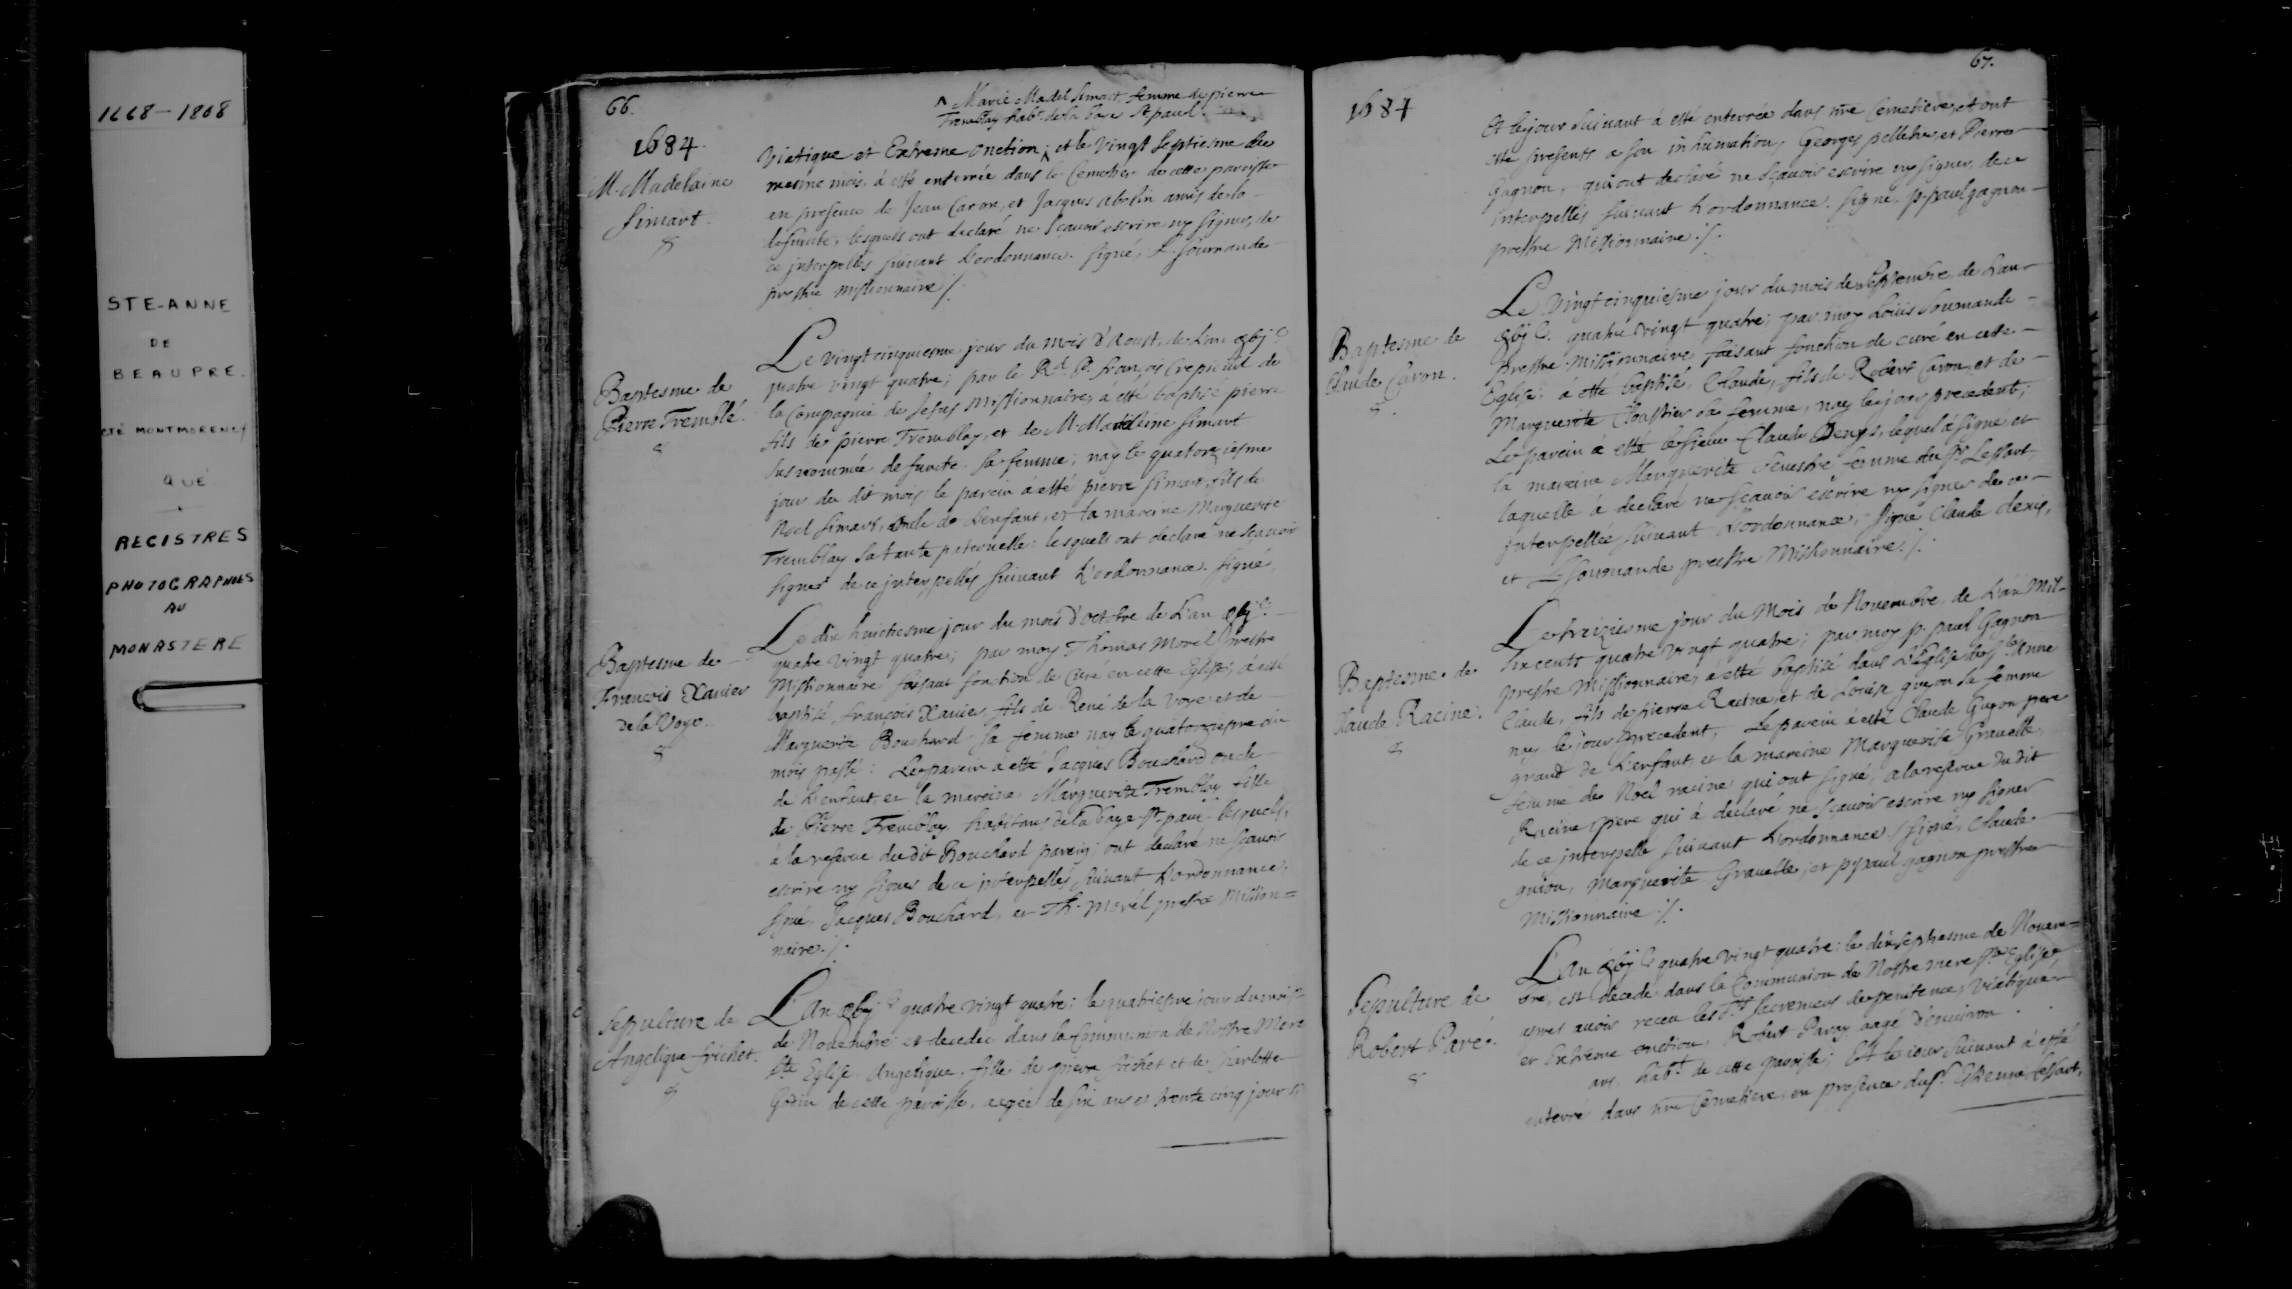 1668-1808
STE-ANNE
DE
BEAUPRE.
CTÉ MONTMORENCY
QUÉ
REGISTRES
PHOTOGRAPHIÉS
AU
MONASTERE
66.
^ Marie Madel Simart femme de pierre
Tremblay habt. de la baye St paul.
1684.
M. Madelaine
Simart.
Viatique et Extreme onction ^ et le vingt septiesme du
mesme mois, à esté enterrée dans le Cemetier de cette paroisse
en presence de Jean Caron, et Jacques abelin amis de la
defuncte, lesquels ont declaré ne sçavoir escrire ny signer, de
ce interpellés suivant L'ordonnance. signé, L. soumande
prestre missionnaire ./.
Baptesme de
Pierre Tremblé.
Le vingtcinquiesme jour du mois d'Aoust, de L'an gbjc
quatre vingt quatre; par le Rd. P. françois Crepieul de
la Compagnie de Jesus Missionnaire, à esté baptisé pierre
fils de pierre Tremblay, et de M. Madeleine simart
susnommée defuncte sa femme; nay le quatorziesme
jour du dit mois; le parein à esté pierre simart, fils de
Noel simart, oncle de Lenfant, et la mareine Marguerite
Tremblay sa tante paternelle: lesquels ont declaré ne sçavoir
signer de ce interpellés suivant L'ordonnance. signé,
Baptesme de
François Xavier
De la Voye.
Le dix huictiesme jour du mois d'octobre de L'an gbjc.
quatre vingt quatre; par moy Thomas Morel prestre
Missionnaire faisant fonction de Curé en cette Eglise, à esté
baptisé, françois Xavier, fils de René de la Voye: et de
Marguerite Bouchard sa femme nay le quatorziesme du
mois passé: Le parein à esté Jacques Bouchard oncle
de Lenfant, et la mareine Marguerite Tremblay fille
de Pierre Tremblay habitans de la baye St. paul lesquels,
à la reserve du dit Bouchard parein; ont declaré ne sçavoir
escrire ny signer de ce interpellés suivant L'ordonnance:
signé Jacques Bouchard, et Th. Morel prestre Mission=
naire ./.
Sepulture de
Angelique frichet.
L'An gbjc quatre vingt quatre: le quatriesme jour du mois
de Novembre est decedée dans la Communion de Nostre Mere
Ste Eglise Angelique fille de pierre frichet et de Charlotte
Godin de cette paroisse, aagée de six ans et trente cinq jours
67.
1684
Et lejour suivant à esté enterrée dans nre Cemetiere, et ont
esté presents a son inhumation, Georges pelletier, et Pierre
Gagnon, qui ont declaré ne sçavoir escrire ny signer, de ce
interpellés suivant L'ordonnance. signé, p. paul gagnon
prestre Missionnaire ./.
Baptesme de
Claude Caron.
Le vingtcinquiesme jour du mois de septembre, de L'an
gbjc. quatre vingt quatre; par moy Loüis Soumande
Prestre Missionnaire faisant fonction de curé en cette
Eglise; à esté baptisé, Claude, fils de Robert Caron, et de
Marguerite Cloustier sa femme, nay le jour precedent;
Le parein à esté le sieur Claude Denys, lequel à signé et
la mareine Marguerite Sevestre femme du sr. Lessart
laquelle à declaré ne sçavoir escrire ny signer de ce
interpellée suivant L'ordonnance, signé Claude denis,
et L. Soumande prestre Missionnaire ./.
Baptesme de
Claude Racine.
Le treiziesme jour du Mois de Novembre, de L'an Mil
six cents quatre vingt quatre; par moy p. paul Gagnon
prestre Missionnaire, à esté baptisé dans L'Eglise de Ste Anne
Claude, fils de pierre Racine, et de Louise guyon sa femme
nay le jour precedent, Le parein à esté Claude Guyon pere
grand de L'enfant et la mareine Marguerite Gravelle
femme de Noel racine qui ont signé, à la reserve du dit
Racine pere qui à declaré ne sçavoir escrire ny signer
de ce interpellé suivant L'ordonnance, signé, Claude
guion, Marguerite Gravelle, et p. paul gagnon prestre
Missionnaire ./.
Sepulture de
Robert Paré.
L'an gbjc quatre vingt quatre: le dixseptiesme de Novem=
bre, est decedé dans la Communion de Nostre mere Ste Eglise,
apres avoir receu les Sts sacremens de penitence, Viatique
et Extreme onction, Robert Paray aagé d'environ
ans, habt. de cette paroisse; Et le jour suivant à esté
enterré dans nre Cemetiere, en presence du sr. Etienne Lessart,